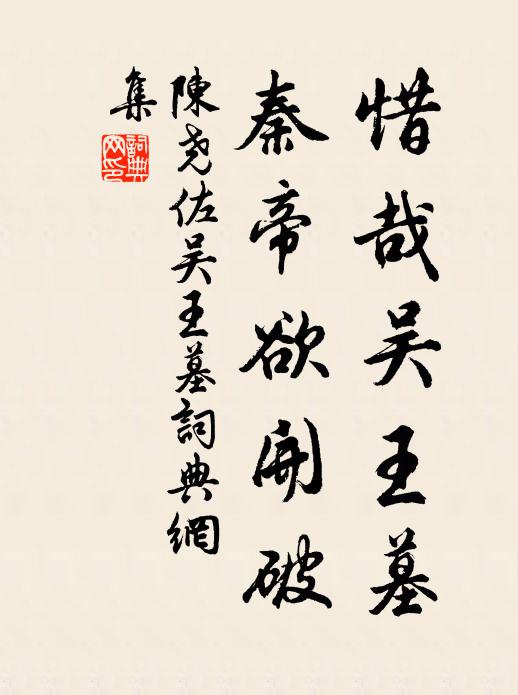 惜哉吴王墓
秦帝欲開破
陳尧佐吴王墓詞典網
集
詞典
网印